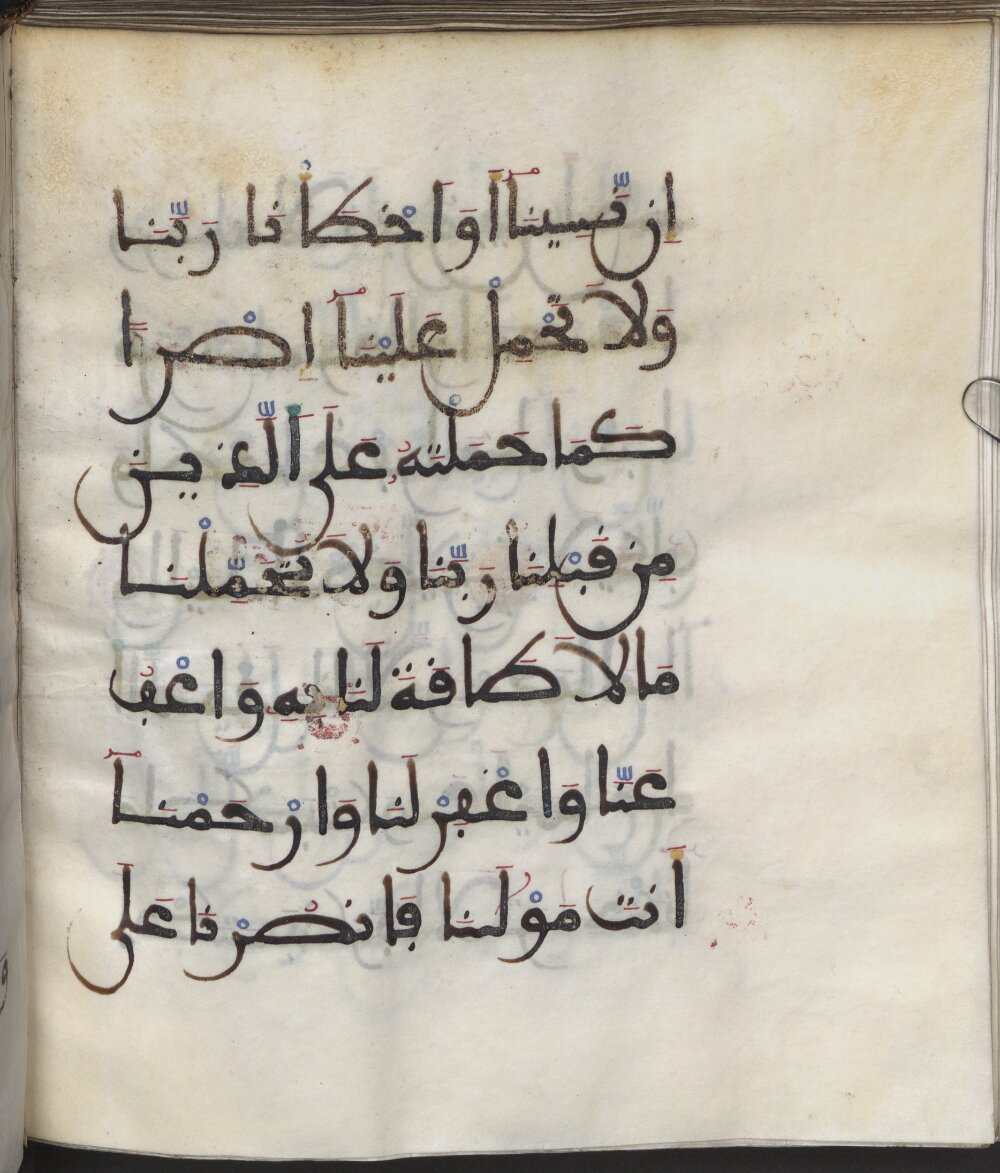 إِن نَّسِينَآ أَوَ اخْطَأْنَا رَبَّنَا
وَلَا تَحْمِلْ عَلَيْنَآ إِصْرًا
كَمَا حَمَلْتَهُۥ عَلَى ٱلَّذِينَ
مِن قَبْلِنَا رَبَّنَا وَلَا تُحَمِّلْنَا
مَا لَا طَاقَةَ لَنَا بِهِۦ وَاعْفُ
عَنَّا وَاغْفِرْ لَنَا وَارْحَمْنَآ
أَنتَ مَوْلَىٰنَا فَانصُرْنَا عَلَى